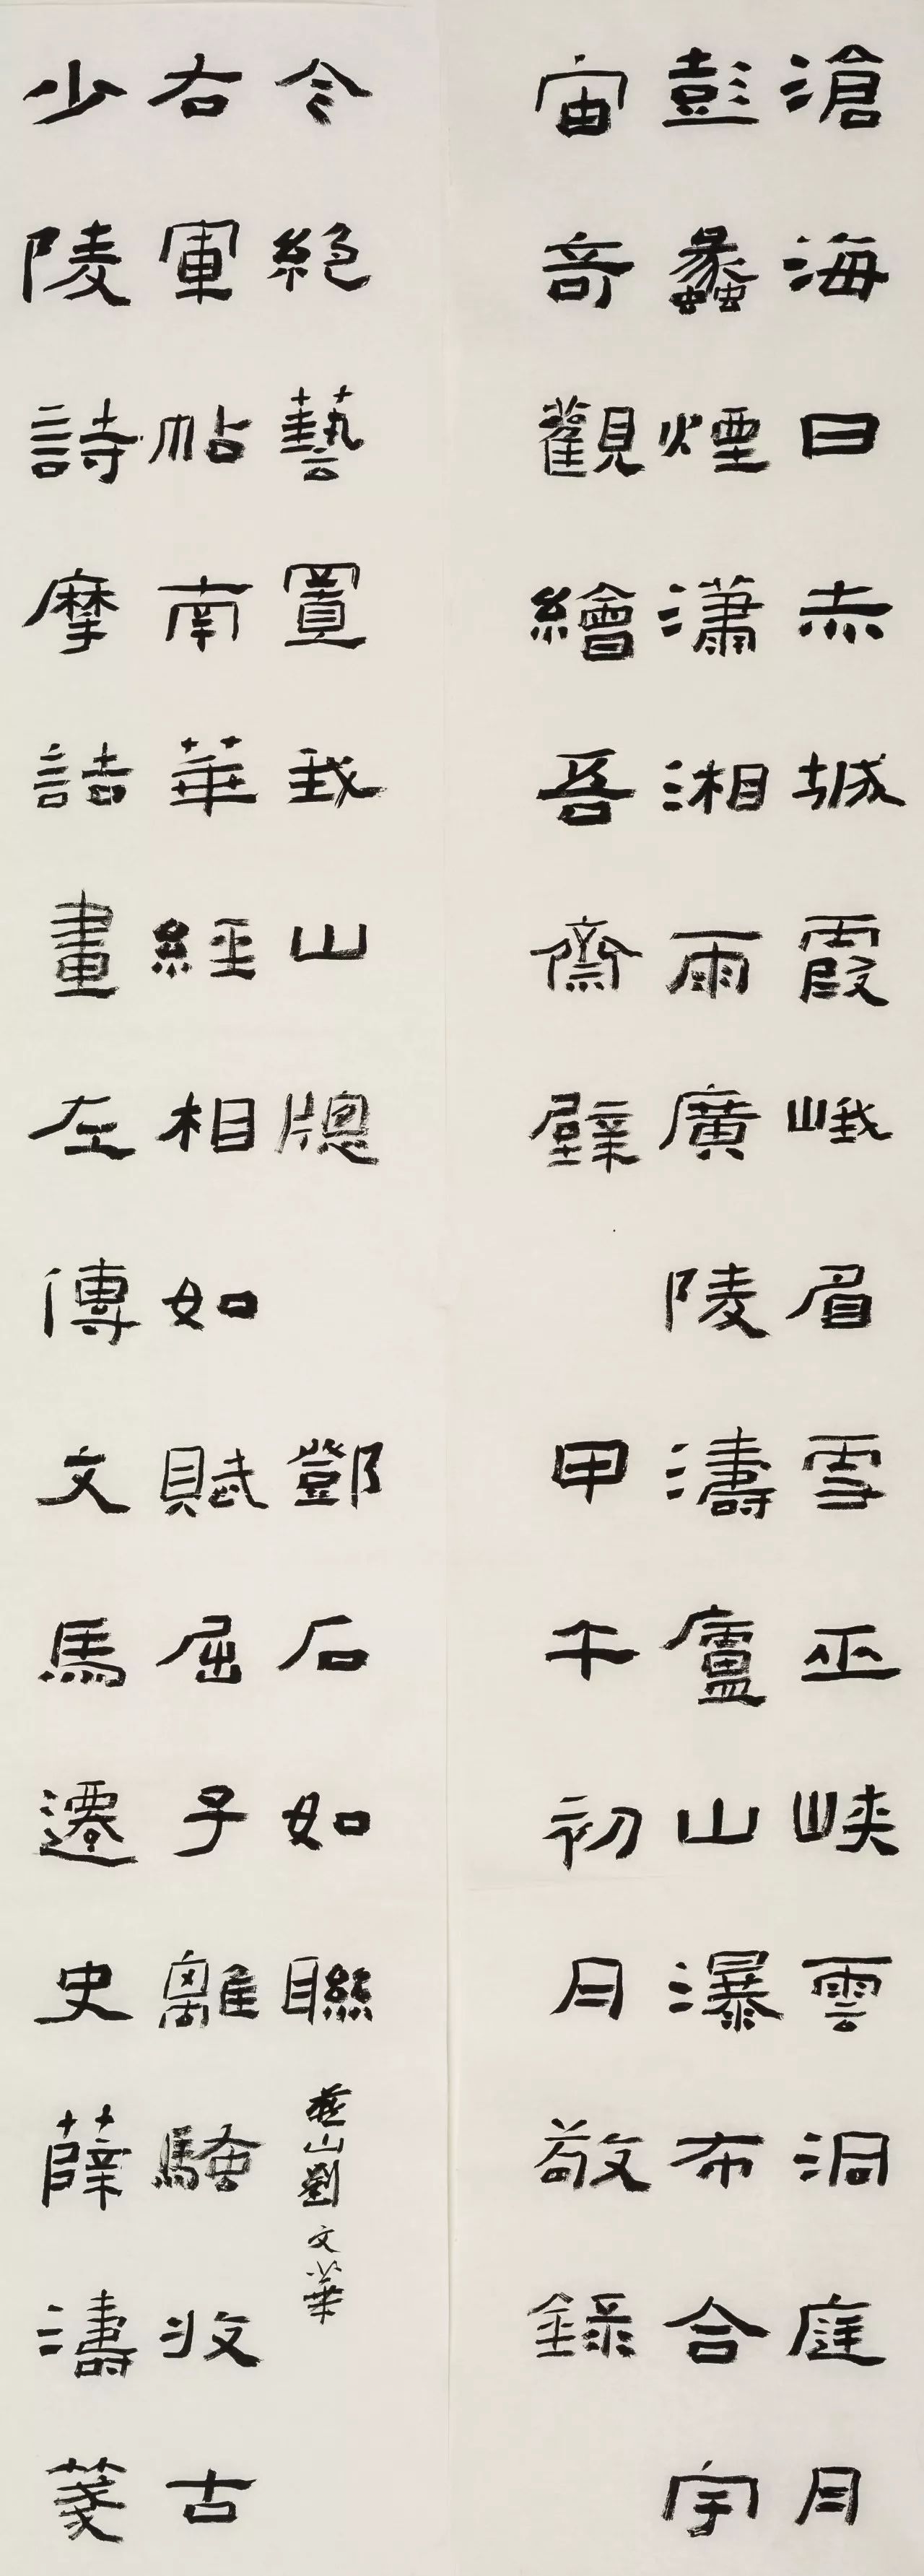 滄海日赤城霞峨眉雪巫峽雲洞庭月
彭蠡煙瀟湘雨廣陵濤廬山瀑布合宇
宙奇觀繪吾齋壁
甲午初月敬錄
少陵詩摩詰畫左傳文馬遷史薛濤箋
右軍帖南華經相如賦屈子離騷收古
今絕藝置我山牕
鄧石如聯
燕山劉文華